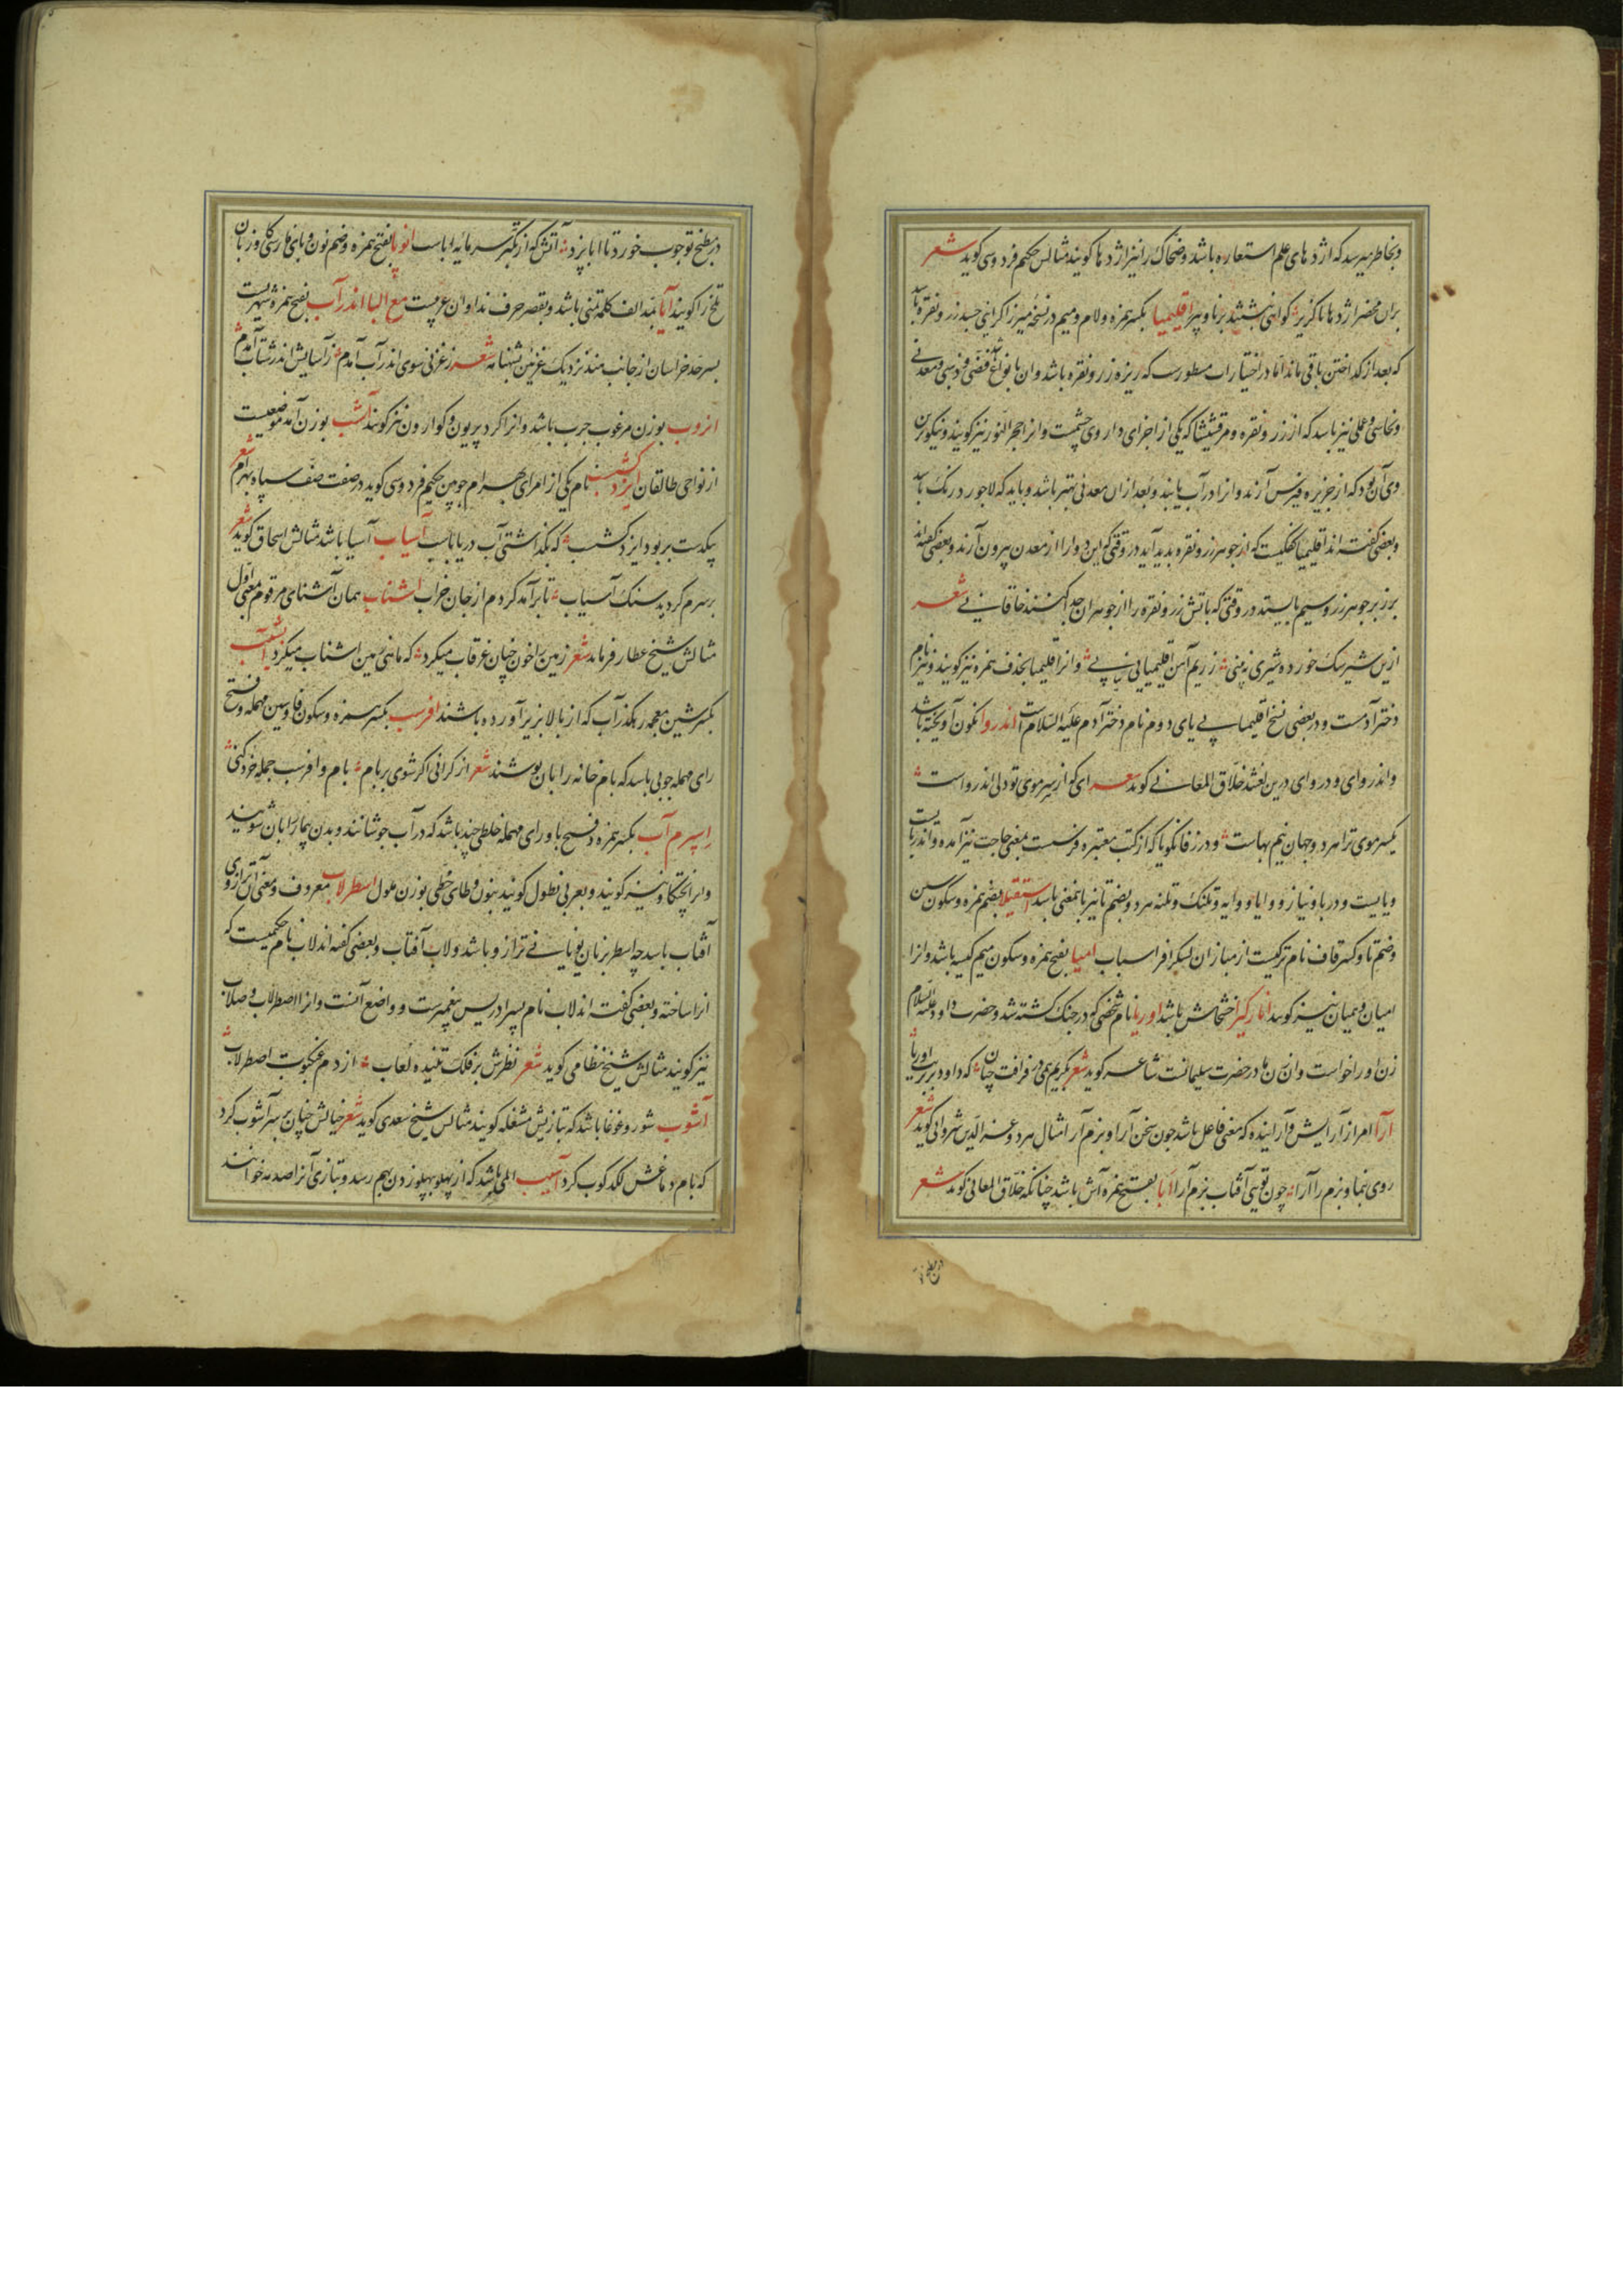 و بخاطر میرسد که اژدهای علم استعاره باشد و ضحاک را نیز اژدها کویند مثالش حکیم فردوسی کوید شعر
بران محضر اژدها ناکزیر کواهی نبشتند برنا و پیر اقلیمیا بکسر همزه و لام و میم در نسخه میرزا کرانی جسد زر و نقره باشد
که بعد از کداختن باقی ماند اما در اختیارات مسطورست که ریزه زر و نقره باشد و ان بانواع باشد فضی و ذهبی و معدنی
و نحاسی و عملی نیز باشد که از زر و نقره و مرقشیشا که یکی از اجزای داروی چشمست و انرا حجر النور نیز کویند و نیکوترین
وی آن بود که از جزیره قبرس آرند و انرا در آب یابند و بعد از ان معدنی بهتر باشد و باید که لاجورد رنک باشد
و بعضی کفته اند اقلیمیا کفکیست که از جوهر زر و نقره بدید آید در وقتی که این دو را از معدن بیرون آرند و بعضی کفته اند
برزبر جوهر زر و سیم بایستد در وقتی که باتش زر و نقره را از جوهر ان جدا کنند خاقانی شعر
ازین شیر سک خورده شیری نه بینی ز ریم آهن اقلیمیایی نیابی و انرا قلیمیا بحذف همزه نیز کویند و نیز نام
دختر آدمست و در بعضی نسخ اقلیما بی یای دوم نام دختر آدم علیه السلام است اندروا نکون آویخته باشد
و اندروای و دروای درین لغتند خلاق المعانی کوید شعر ای کز سر موی تو دلی اندرواست
یکسر موی ترا هر دو جهان نیم بهاست و در زفانکویا که از کتب معتبره فرسست بمعنی حاجت نیز آمده و اندربایست
و بایست و دربا و نیاز و وایا و وایه و تلنک و تلنه هر دو بضم تا نیز باینمعنی باشد استقیلا بضم همزه و سکون سین
و ضم تا و کسر قاف نام ترکیست از مبارزان لشکر افراسیاب امیا بفتح همزه و سکون میم کیسه باشد و انرا
امیان و همیان نیز کویند انارکیرا خشخاش باشد اوریا نام شخصی که در جنک کشته شد و حضرت داود علیه السلام
زن او را خواست و ان زن مادر حضرت سلیمانست شاعر کوید شعر بکریم همی در فراقت چنان که داود بر تربت اوریا
آرا امر از آرایش و آراینده که معنی فاعل باشد چون سخن آرا و بزم آرا مثال هر دو عز الدین شروانی کوید شعر
روی بنما و بزم را آرا چون تویی آفتاب بزم آرا ابا بفتح همزه آش باشد چنانکه خلاق المعانی کوید شعر
در مطبخ تو
در مطبخ تو چوب خورد تا ابا پزد آتش که از تکبر سرمایه اباست انوپا بفتح همزه و ضم نون و بای فارسی کلی وزبان
تلخ را کویند آیا بمد الف کلمه تمنی باشد و بقصر حرف ندا و ان عربیست مع البا اندر آب بفتح همزه شهریست
بسرحد خراسان از جانب هند نزدیک غزنین شهنامه شعر ز غزنی سوی اندر آب آمدم ز آسایش اندر شتاب آمدم
انروب بوزن مرغوب جرب باشد و انرا کرد پریون و کوارون نیز کویند آشب بوزن آمد موضعیست
از نواحی طالقان ایزد کشسب نام یکی از امرای بهرام چوبین حکیم فردوسی کوید در صفت صف سپاه بهرام شعر
بیکدست بر بود ایزد کشسب که بکذاشتی آب دریا باسب آسیاب آسیا باشد مثالش اسحاق کوید شعر
بر سرم کردید سنک آسیاب تا برآمد کردم از جان خراب اشناب همان آشنای مرقوم بمعنی اول
مثالش شیخ عطار فرماید شعر زمین را خون چنان غرقاب میکرد که ماهی زمین اشناب میکرد آشیب
بکسر شین معجمه رهکذر آب که از بالا بزیر آورده باشند افرسب بکسر همزه و سکون فا و سین مهمله و فتح
رای مهمله چوبی باشد که بام خانه را بان پوشند شعر از کرانی اکر شوی بر بام بام و افرسب جمله خرد کنی
اسپرم آب بکسر همزه و فتح با و رای مهمله خلطی چند باشد که در آب جوشانند و بدن بیمار را بان شویند
و انرا نختکاو نیز کویند و بعربی نطول کویند بنون و طای حطی بوزن ملول اسطرلاب معروف و معنی آن ترازوی
آفتاب باشد چه اسطر بزبان یونانی ترازو باشد و لاب آفتاب و بعضی کفته اند لاب نام حکمیست که
انرا ساخته و بعضی کفته اند لاب نام پسر ادریس پیغمبرست و واضع آنست و انرا اصطرلاب و صلاب
نیز کویند مثالش شیخ نظامی کوید شعر نظرش بر فلک تنیده لعاب از دم عنکبوت اصطرلاب
آشوب شور و غوغا باشد که بتازیش مشغله کویند مثالش شیخ سعدی کوید شعر خیالش چنان بر سر آشوب کرد
که بام دماغش لکد کوب کرد آسیب المی باشد که از پهلو بپهلو زدن بهم رسد و بتازی آنرا صدمه خوانند